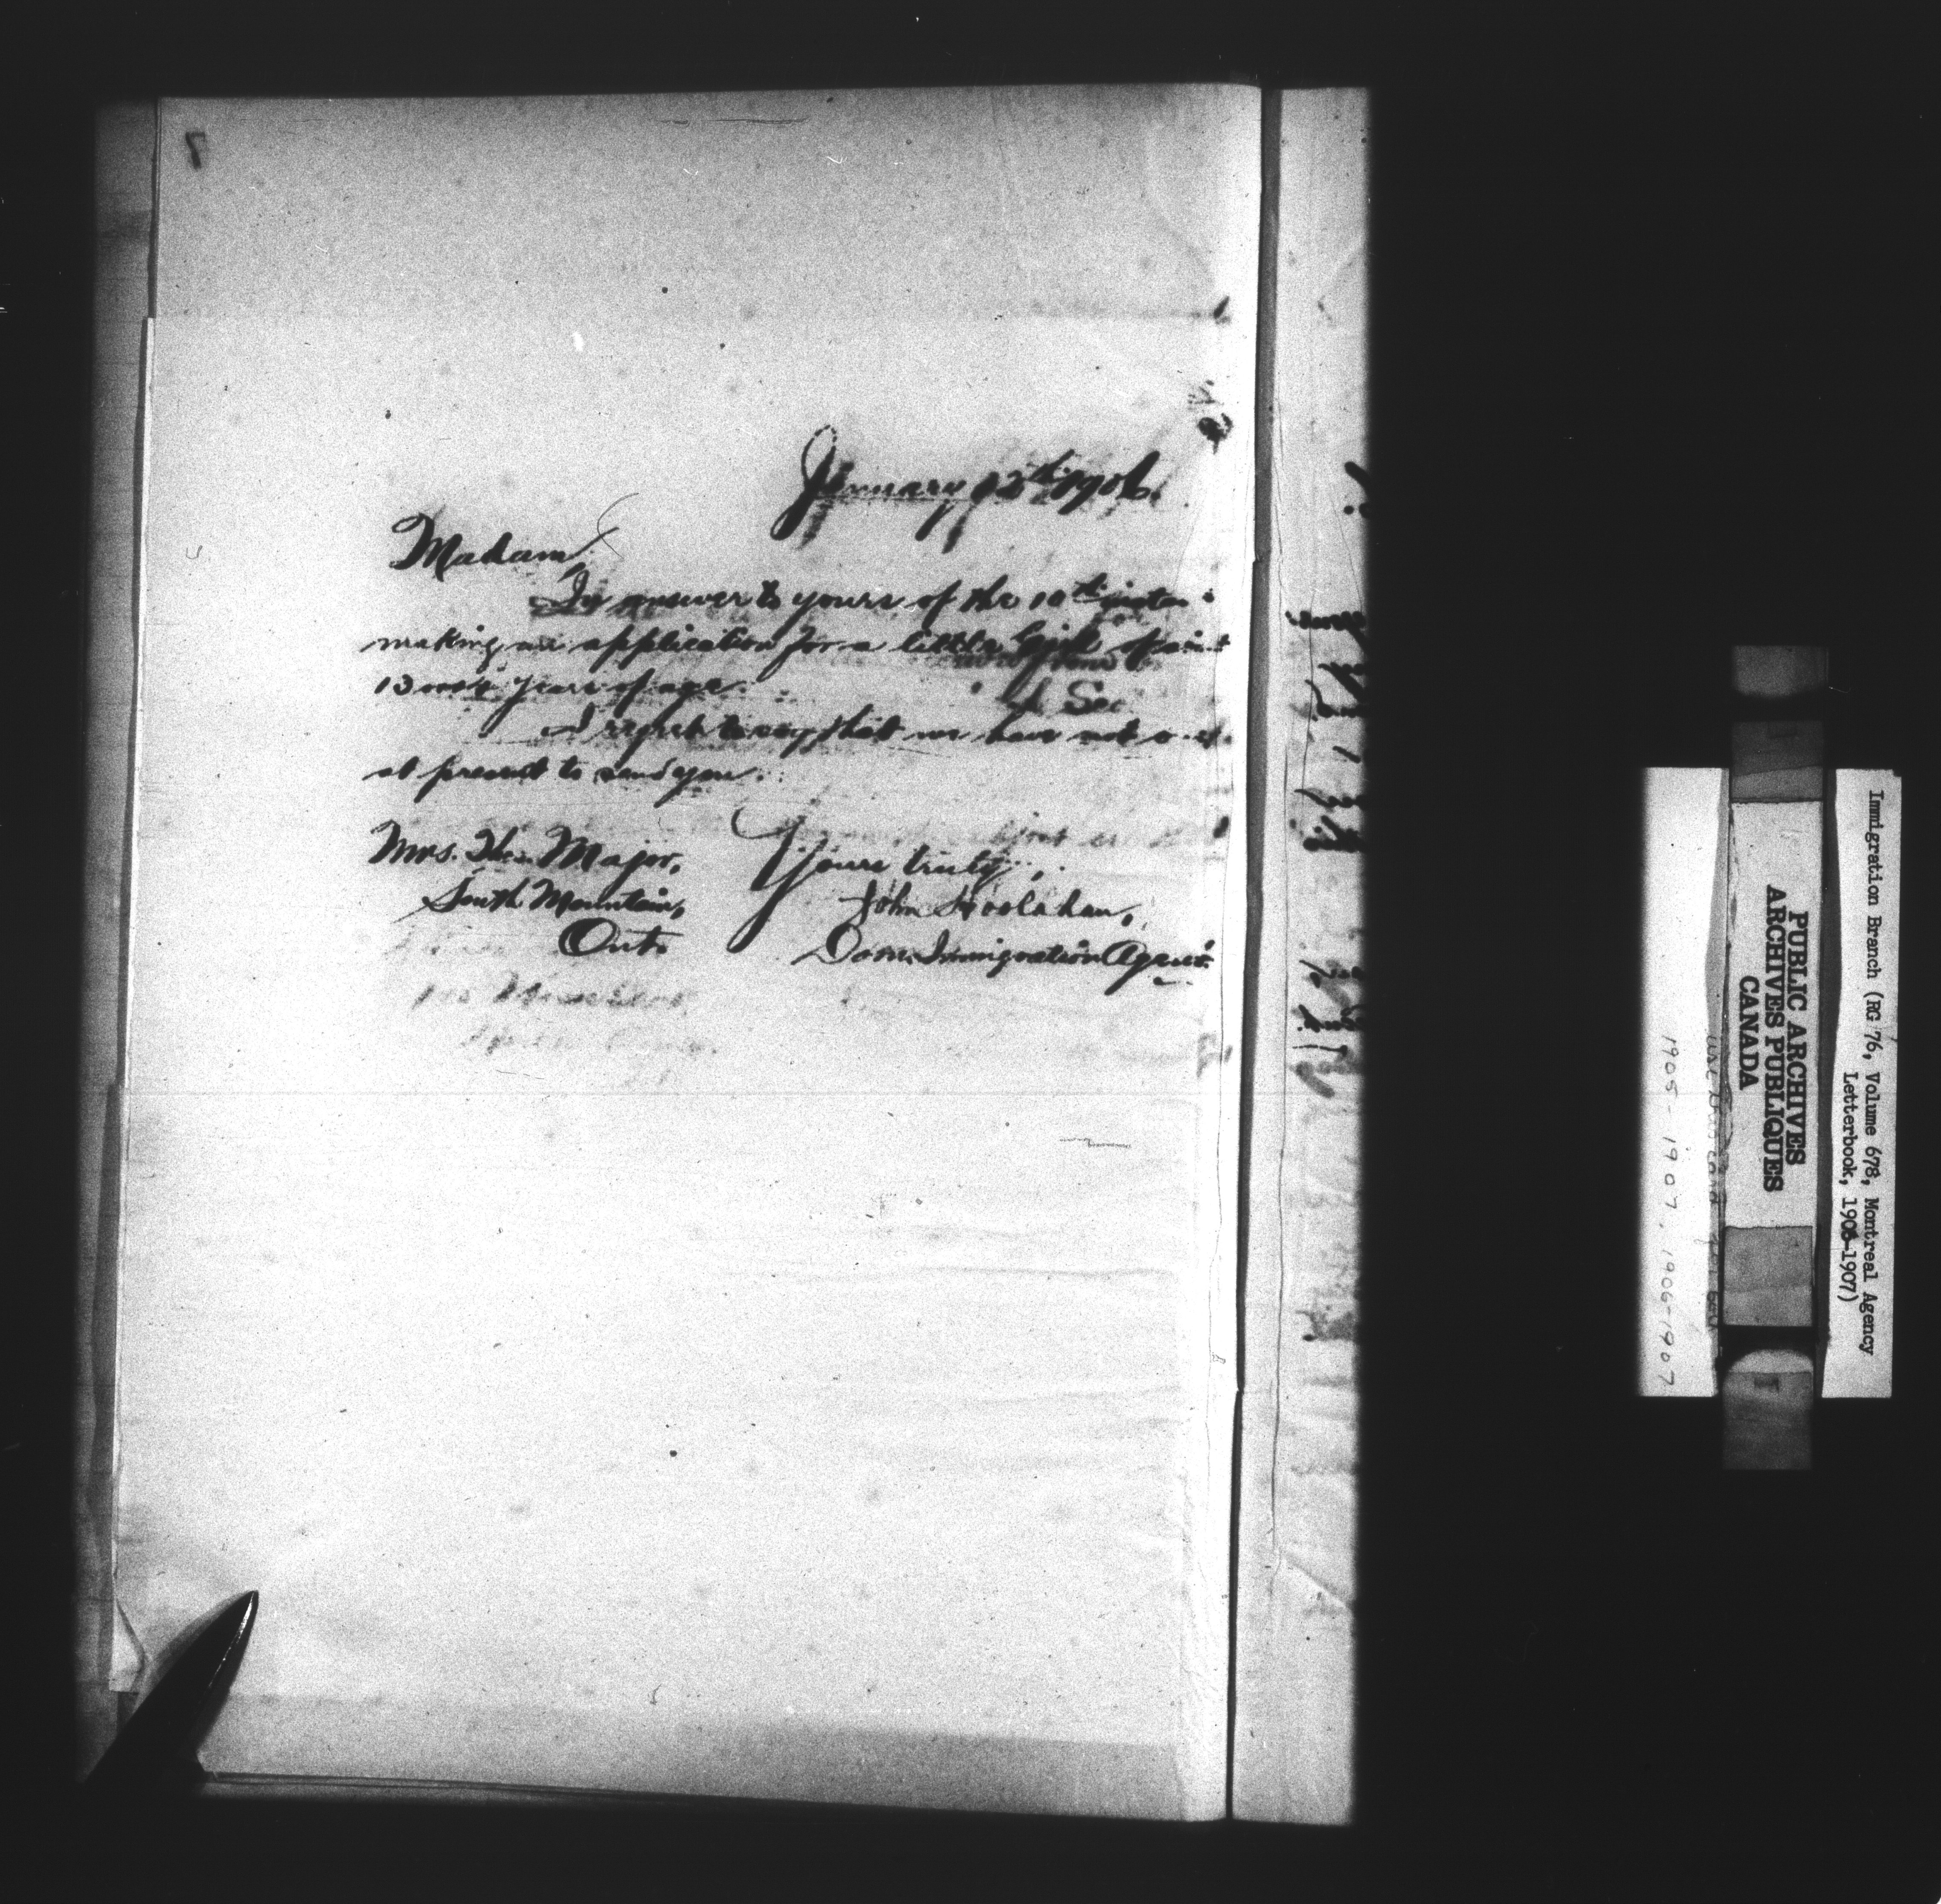 7
January 12th 1906.
Madam,
In answer to yours of the 10th
making an application for a little Girl
13 or 14 years of age.
I regret to say that we have not
at present to send you.
Yours truly,
John Hoolahan,
Dom. Immigration Agent.
Mrs. Major,
South Mountain,
Ont.
Immigration Branch (RG 76, Volume 678, Montreal Agency
Letterbook, 1906-1907)
PUBLIC ARCHIVES
ARCHIVES PUBLIQUES
CANADA
1905-1907, 1906-1907